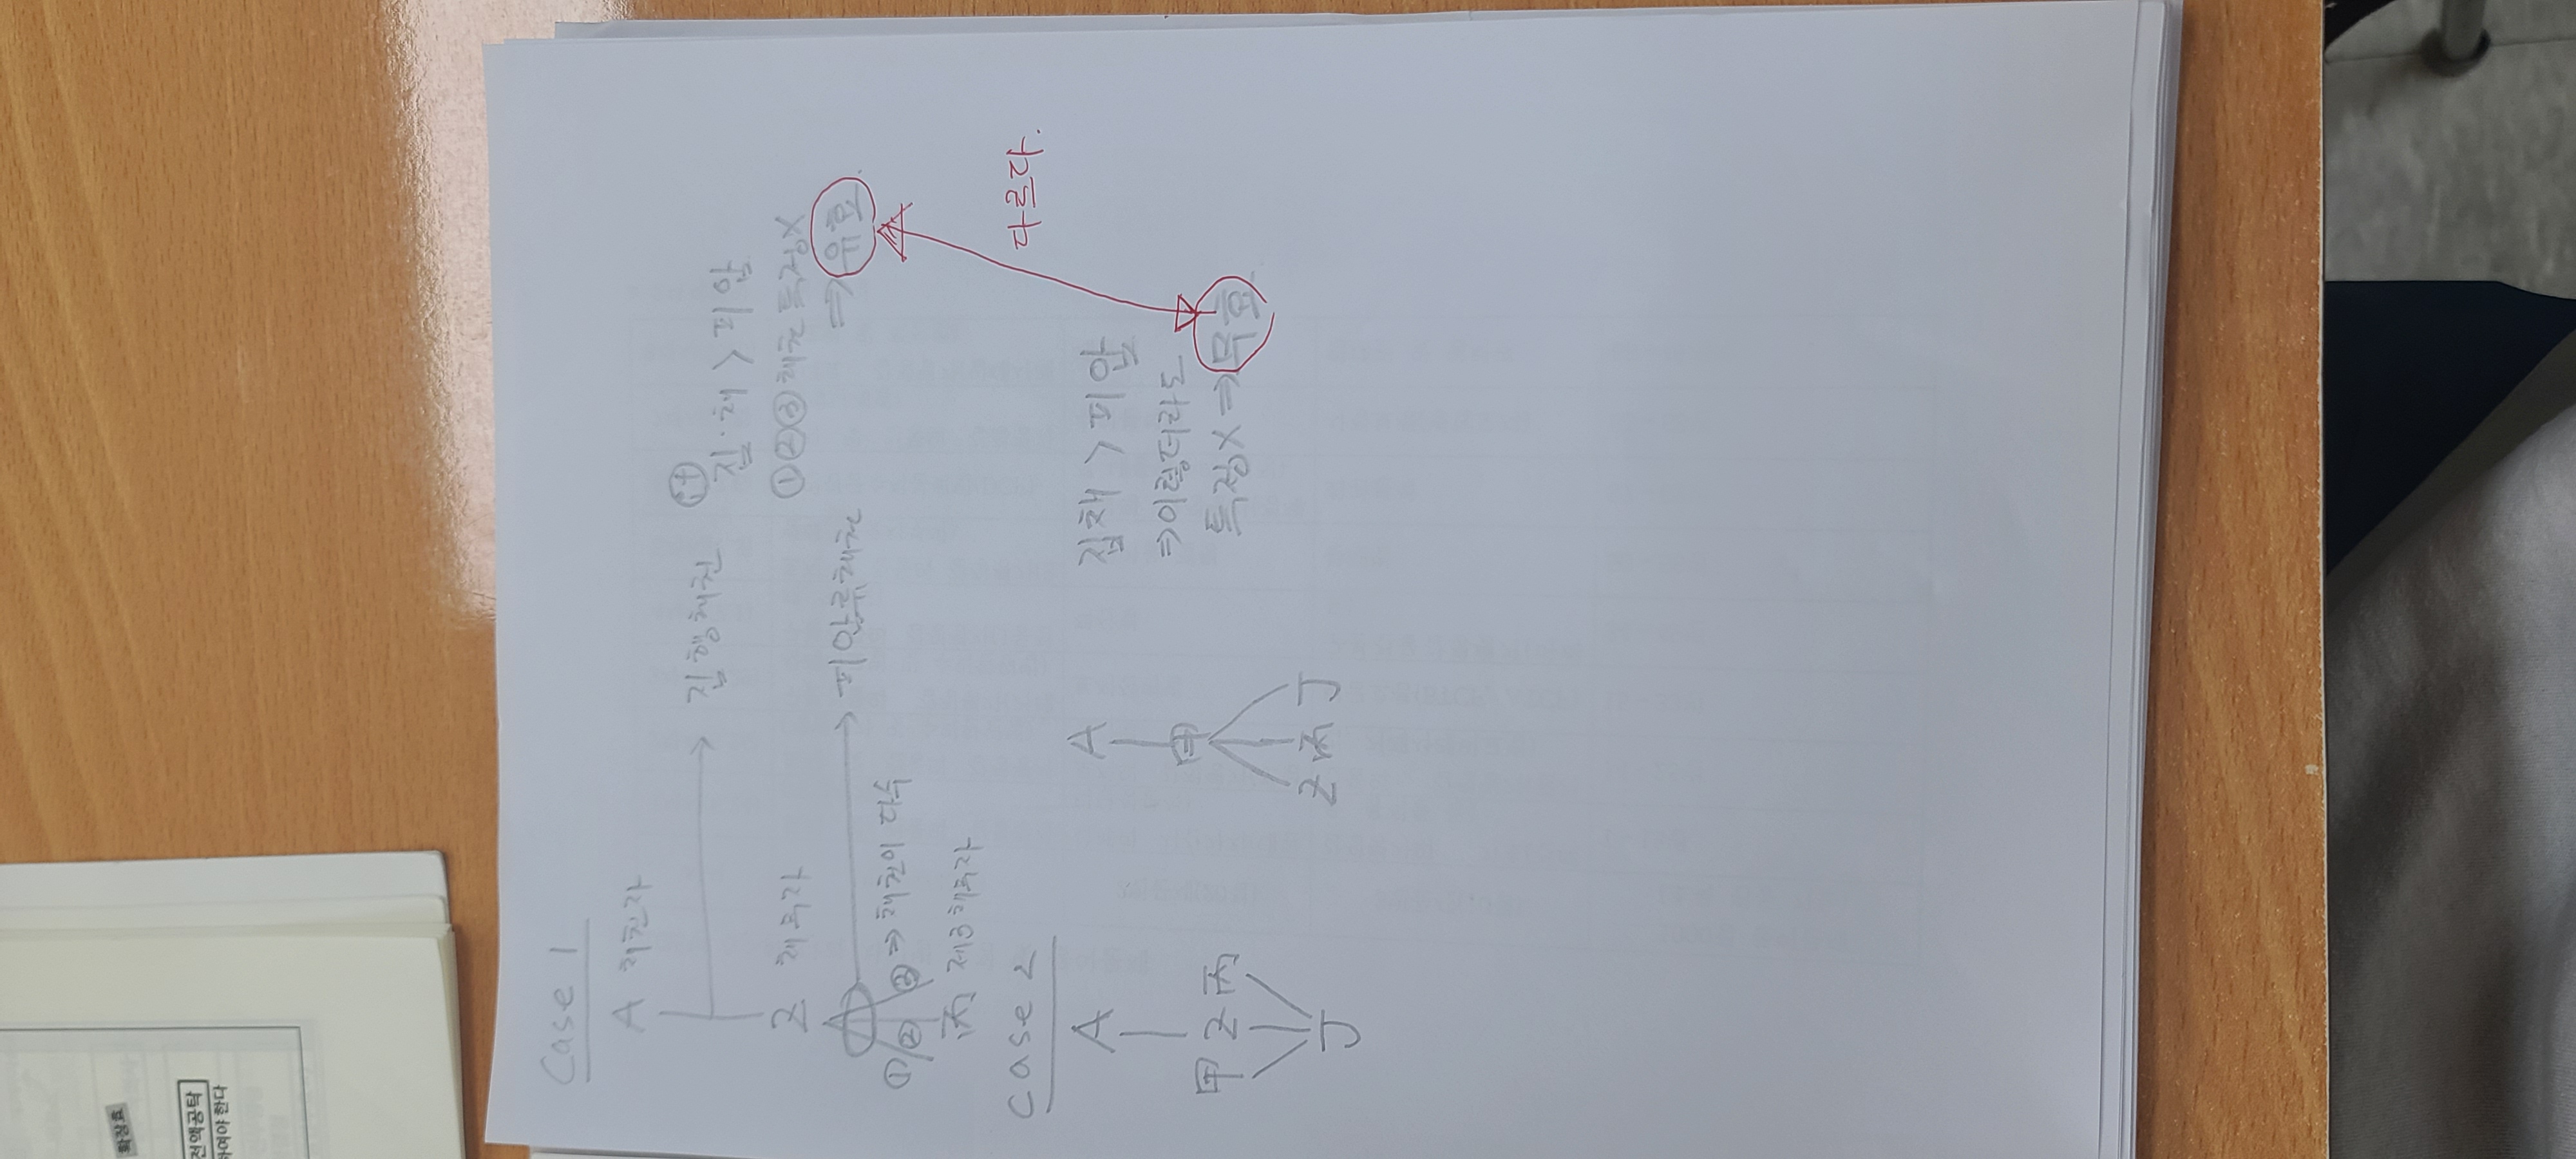 Case 1
A 채권자
→ 집행채권
乙 채무자
→ 피압류채권
① ② ③ ⇒ 채권이 다수
丙 제3채무자
집·채 > 피압
①②③ 채권 특정X
⇒ 유효.
다르다.
Case 2
A
甲 乙 丙
丁
A
甲
乙 丙 丁
집채 > 피압
⇒ 이럴더라도
특정X ⇒ 무효
확장효
전액공탁
하여야 한다